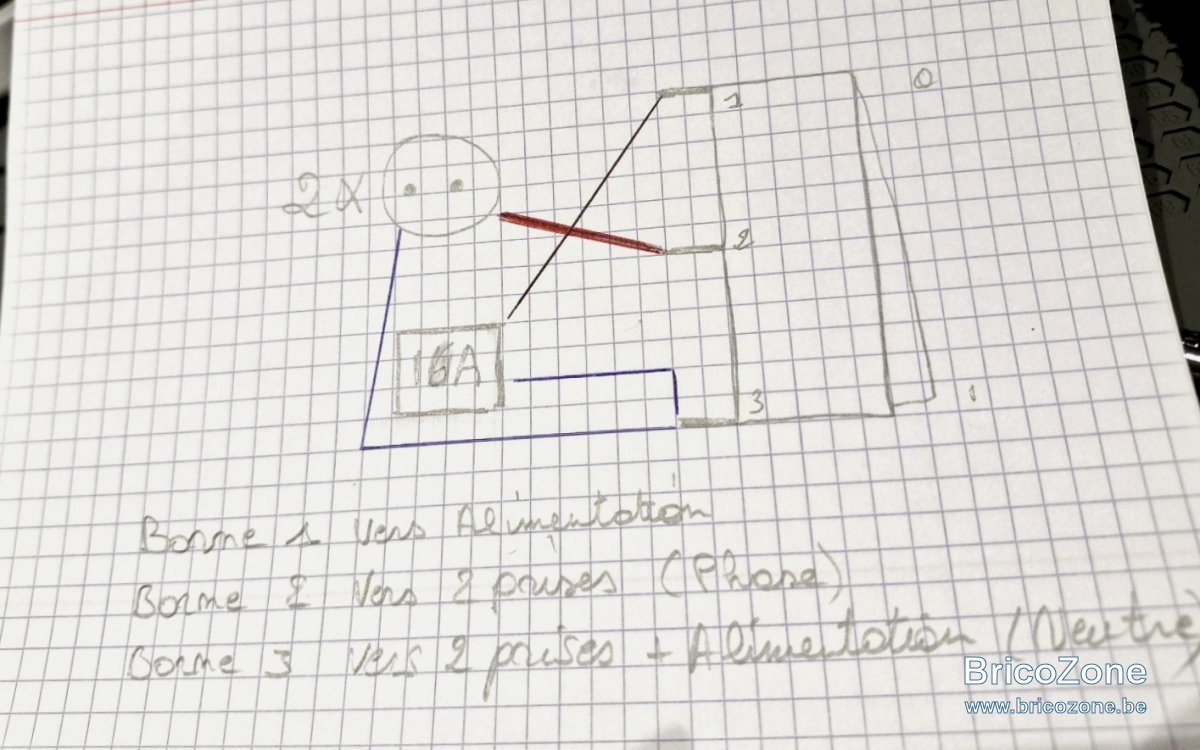 0
1
2X
2
16A
3
1
Borne 1 Vers Alimentation
Borne 2 Vers 2 prises (Phase)
Borne 3 Vers 2 prises + Alimentation (Neutre)
BricoZone
www.bricozone.be